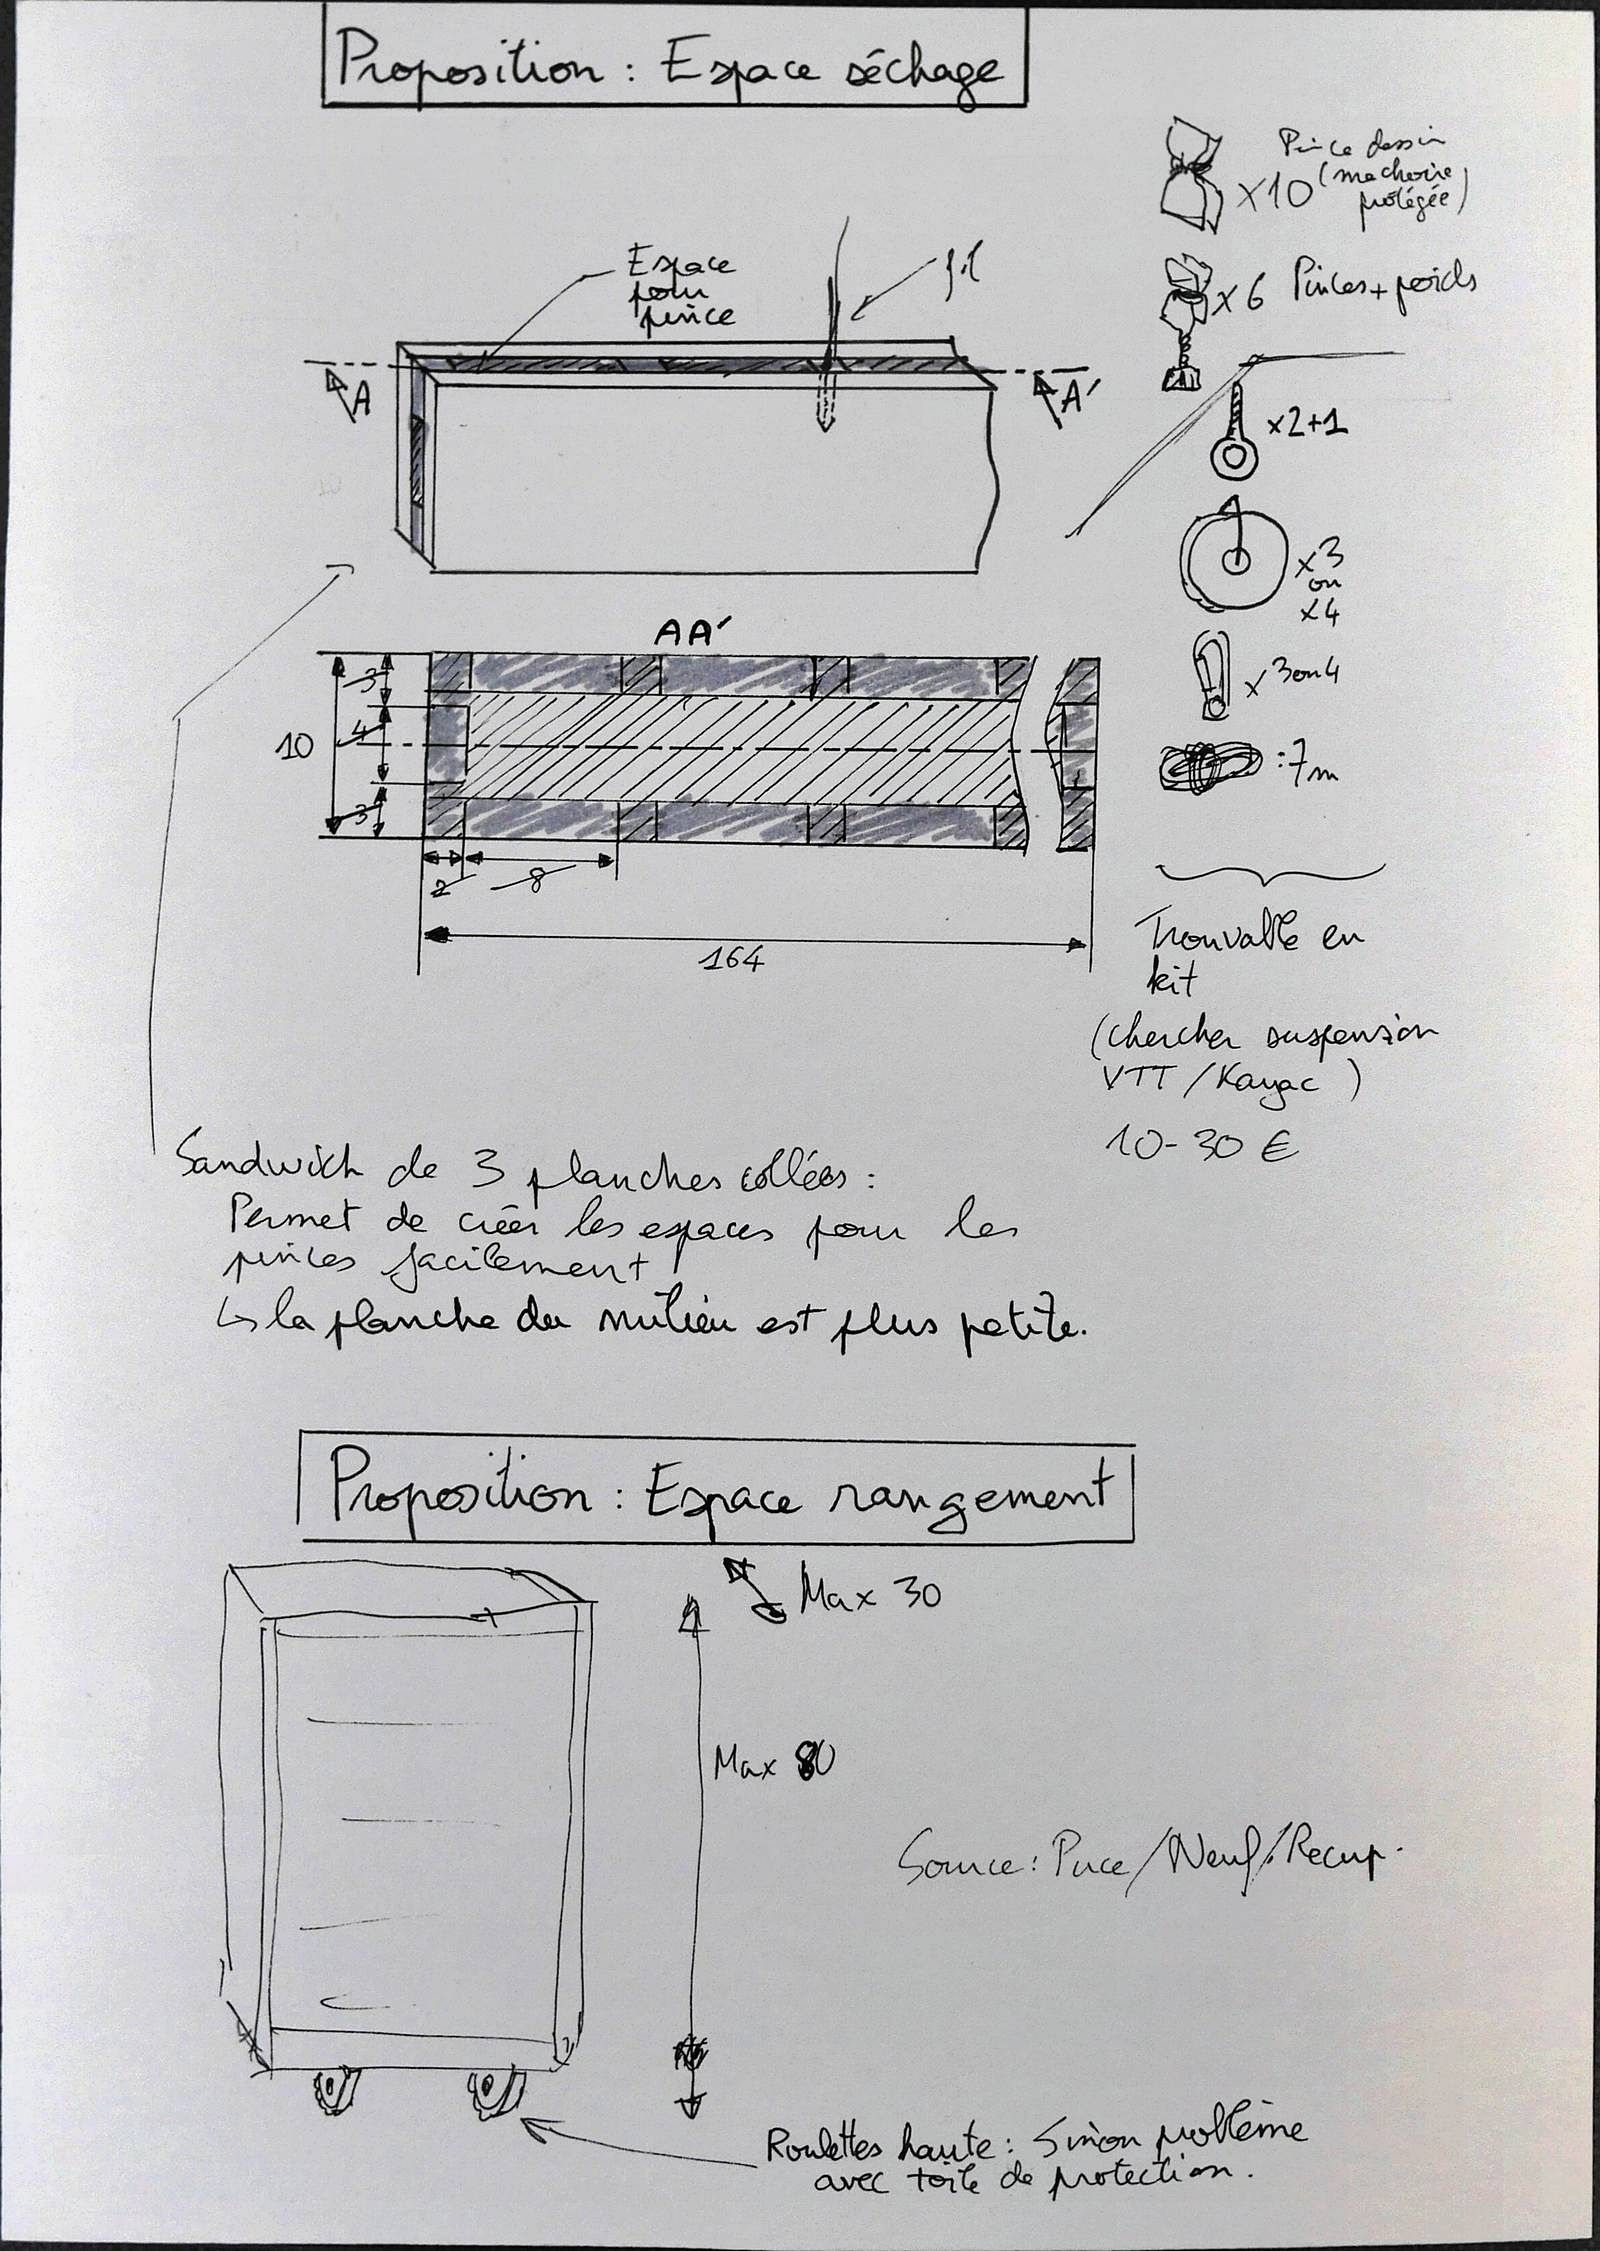 Proposition : Espace séchage
Pince dessin
(machoire
protégée)
x10
Espace
pour
pince
fil
x6 Pinces + poids
A
A'
x2+1
x3
ou
x4
AA'
3
4
3
10
2
8
164
x 3 ou 4
: 7m
Trouvable en
kit
(chercher suspension
VTT / Kayac )
10-30 €
Sandwich de 3 planches collées :
Permet de créer les espaces pour les
pinces facilement
↳ la planche du milieu est plus petite.
Proposition : Espace rangement
Max 30
Max 80
Source : Puce/Neuf/Recup.
Roulettes haute : Sinon problème
avec toile de protection.